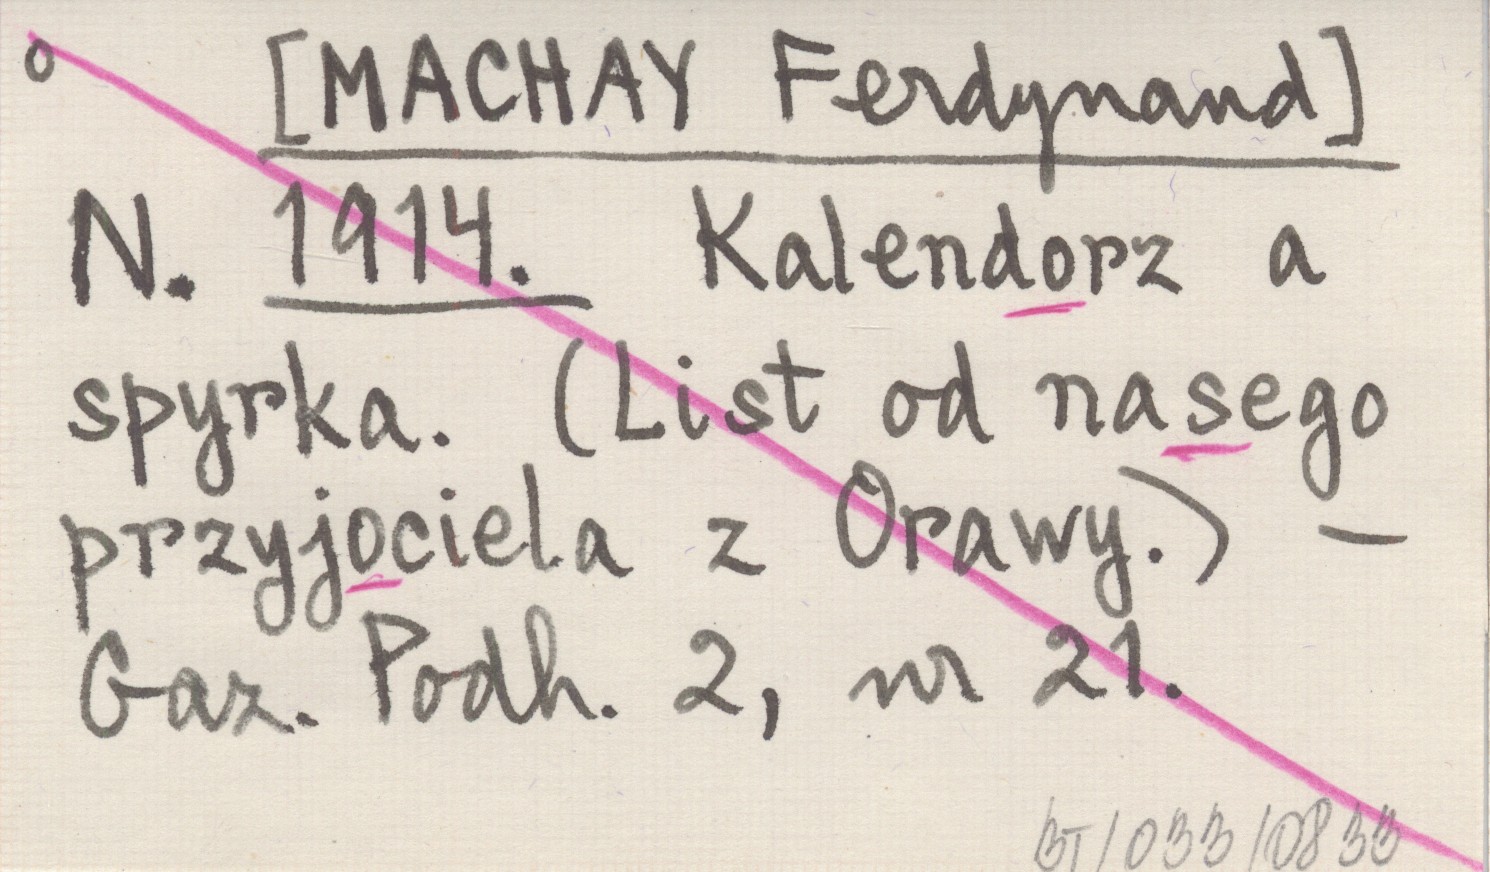 o [MACHAY Ferdynand]
N. 1914. Kalendorz a
spyrka. (List od nasego
przyjociela z Orawy.) –
Gaz. Podh. 2, nr 21.
BT/033/0833